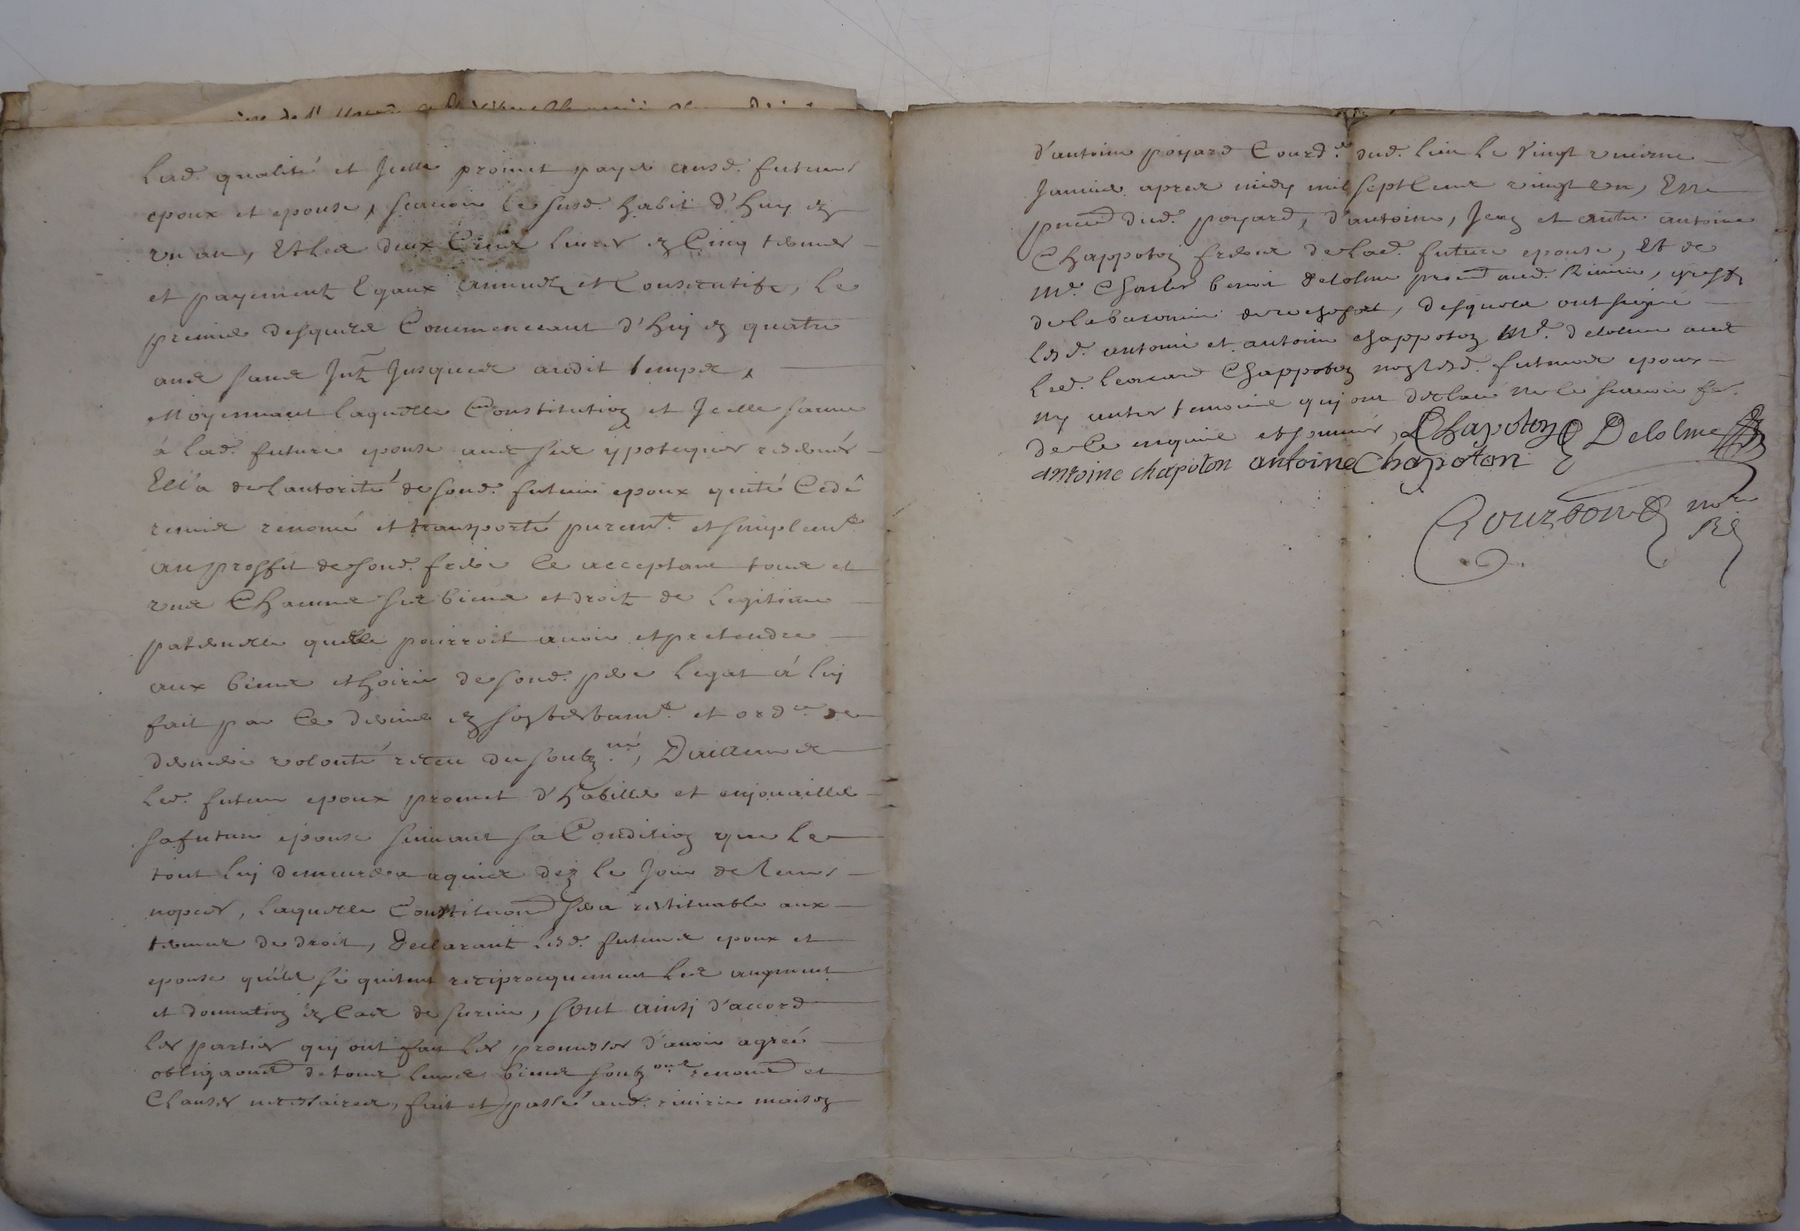 lad. qualité et Jcelle promet payer ausd. futeurs
epoux et epouse, scavoir le susd. habit d'huy en
vn an, Et les deux Cent liures en Cinq termes
et payements Egaux annuels et Consecutifs, le
premier desquels Commenceant d'huy en quatre
ans sans Jnts Jusques aud.it temps,
Moyennant laquelle Constitution et Jcelle sauue
à lad. future epouse auec ses ypoteques reserués
Ell'a de lautorité de sond. futeur epoux quité Cedé
remis renoncé et transporté purem.t et simplem.t
au proffit de sond. frere Ce acceptant tous et
vns Chacuns ses biens et droits de Legitime
paternelle quelle pourroit auoir et pretendre
aux biens et hoirie de sond. pere legat à luy
fait par Ce dernier en son testam.t et ord.ce de
derniere volonté receu du soubz.né, D'ailleurs
led. futeur epoux promet d'habiller et enjouailler
sa future epouse suiuant sa Condition que le
tout luy demeurera aquis dez le Jour de leurs
nopces, laquelle Constitution sera restituable aux
termes de droit, Declarant lesd. futeurs epoux et
epouse qu'ils se quittent reciproquement les augment
et donnation en Cas de suruie, sont ainsj d'accord
les parties quj ont fait les promesses d'auoir agreé
obligaons de tous leurs biens soubz.ons renons et
Clauses necessaires, fait et passé aud. riuirie maison
d'antoine poyard Courd.r dud. lieu le vingt vnieme
Januier apres midy mil sept Cent vingt en,
pnce dud. poyard, d'antoine, Jean et autre antoine
Chappoton freres de lad. future epouse, Et de
M.e Charles benoit delolme procu.r aud. Riuirie, greff.
de la baronnie de rochefort, desquels ont signé
lesd. antoine et antoine chappoton M.e delolme auec
led. leonard Chappoton non lesd. futeurs epoux
ny autres temoins quj ont declaré ne le scauoir fe.
de Ce enquis et sommés, Chapoton Delolme
antoine chapoton antoine Chapoton
Gourbon no.re
R.l